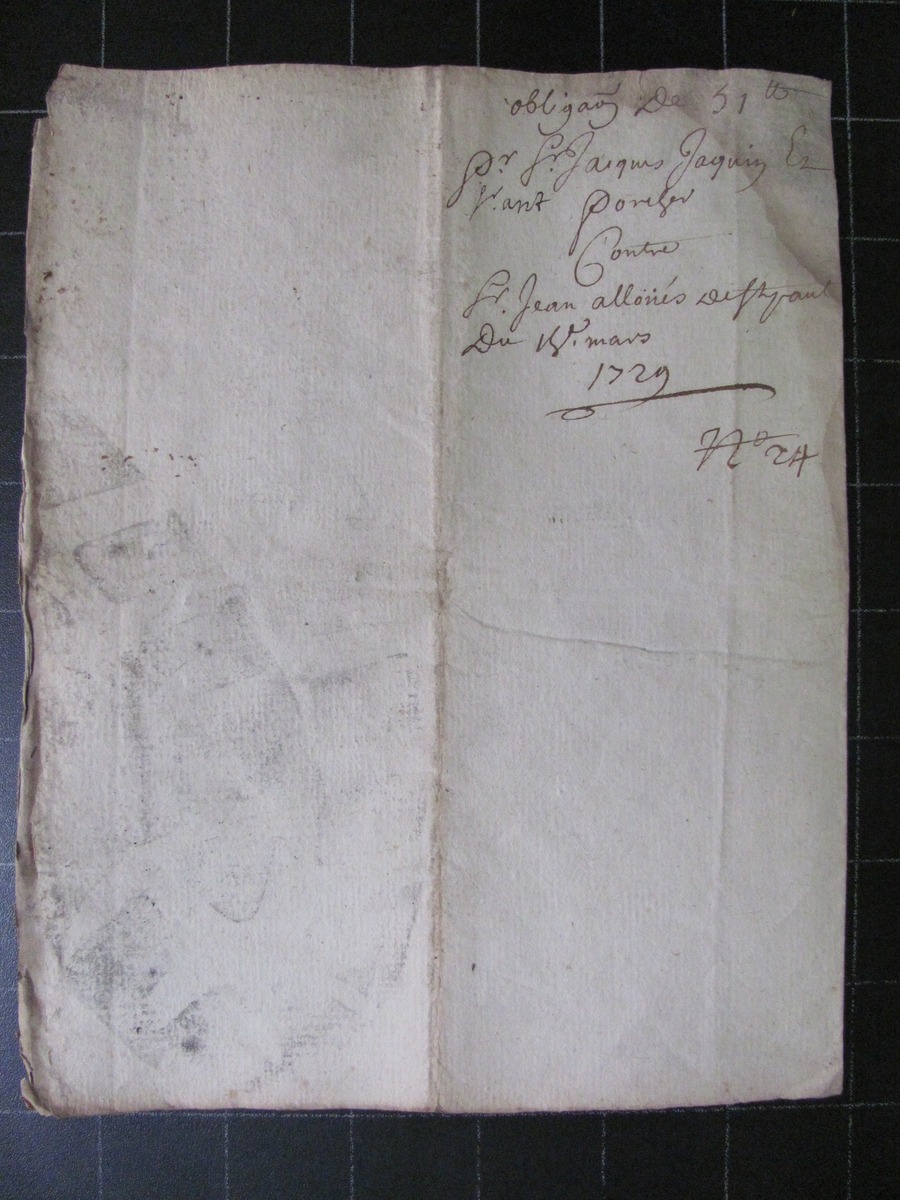 obligaõn De 51 tt
Pr Sr. Jacques Jaquin Et
Sr. ant Porcher
Contre
Sr. Jean alloüés de St paul
Du mars
1729
No 24